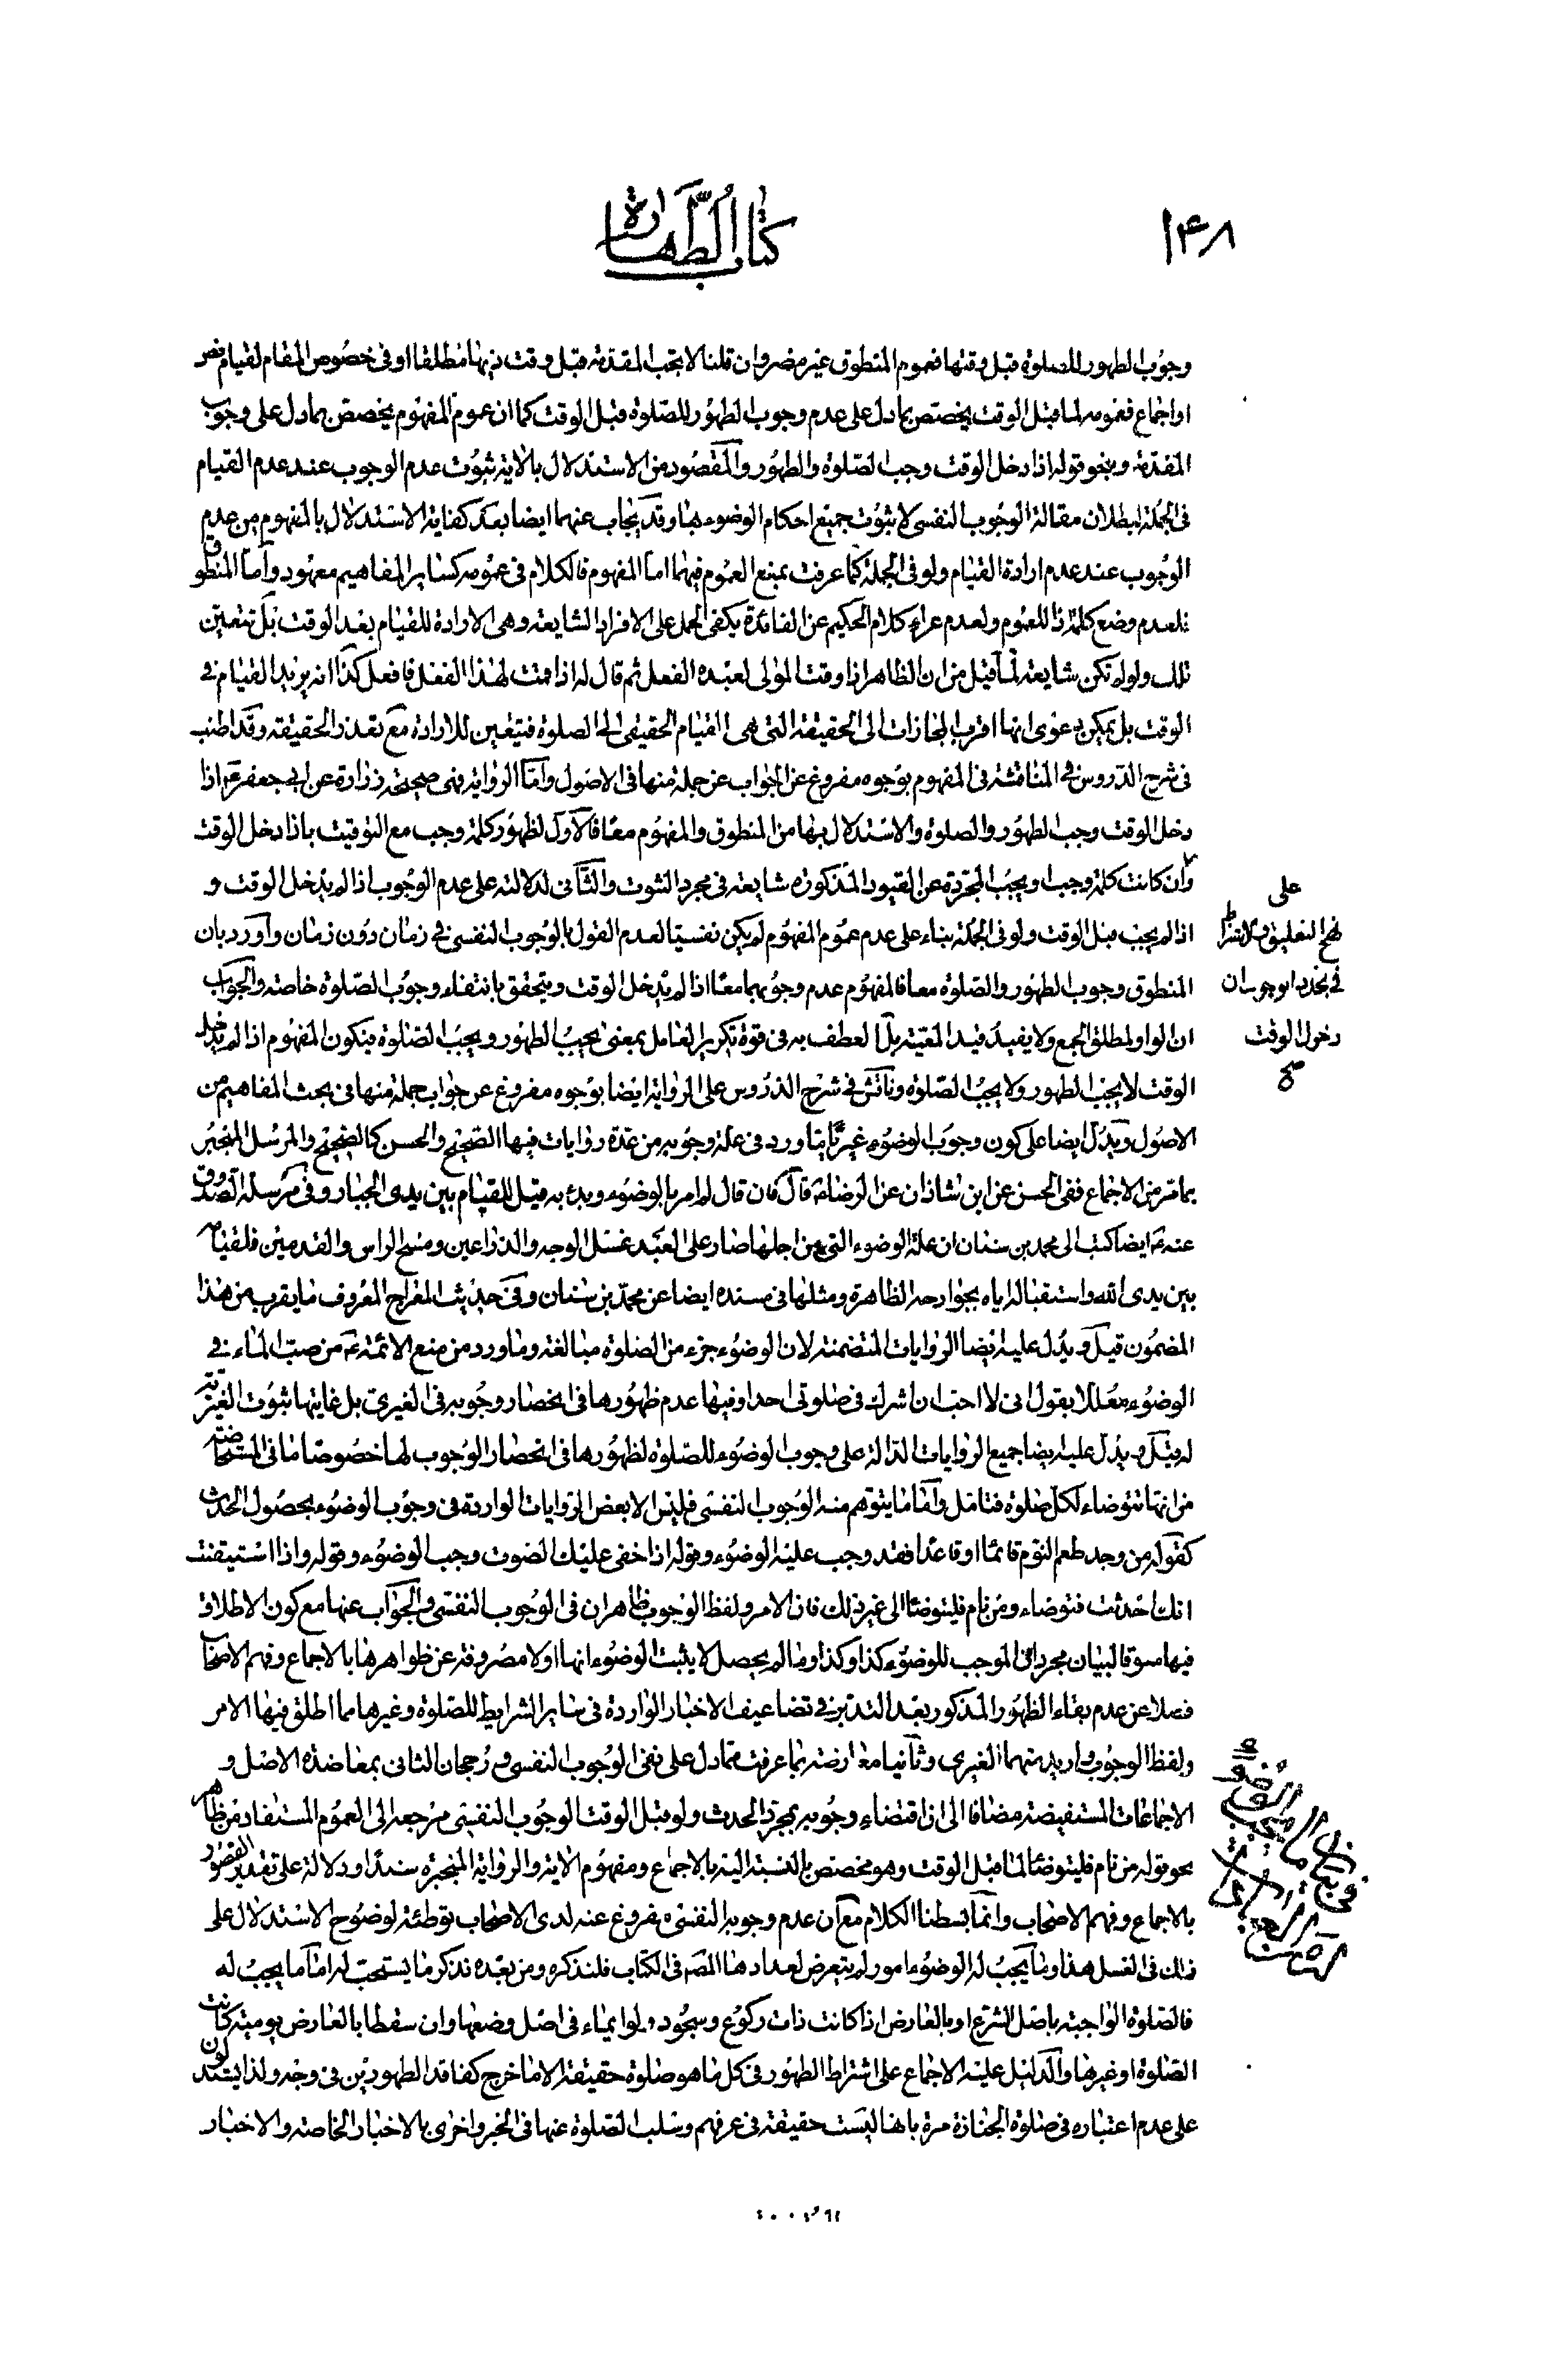 ١٤٨
كتاب الطهارة
وجوب الطهور للصلوة قبل وقتها فعموم المنطوق غير مضر وان قلنا لا يجب المقدمة قبل وقت ذيها مطلقا او فى خصوص المقام لقيام نص
او اجماع فعمومه لما قبل الوقت يخصص بما دل على عدم وجوب الطهور للصلوة قبل الوقت كما ان عموم المفهوم يخصص بما دل على وجوب
المقدمة وبنحو قوله اذا دخل الوقت وجب الصلوة والطهور والمقصود من الاستدلال بالاية ثبوت عدم الوجوب عند عدم القيام
فى الجملة لبطلان مقالة الوجوب النفسى لا ثبوت جميع احكام الوضوء بها وقد يجاب عنهما ايضا بعد كفاية الاستدلال بالمفهوم من عدم
الوجوب عند عدم ارادة القيام ولو فى الجملة كما عرفت بمنع العموم فيهما اما المفهوم فالكلام فى عمومه كساير المفاهيم معهود وأما المنطوق
فلعدم وضع كلمة اذا للعموم ولعدم عراء كلام الحكيم عن الفائدة يكفى الحمل على الافراد الشايعة وهى الارادة للقيام بعد الوقت بل تتعين
تلك ولو لم تكن شايعة لما قيل من ان الظاهر اذا وقت المولى لعبده الفعل ثم قال له اذا قمت لهذا الفعل فافعل كذا انه يريد القيام فى
الوقت بل يمكن دعوى انها اقرب المجازات الى الحقيقة التى هى القيام الحقيقى الى الصلوة فيتعين للارادة مع تعذر الحقيقة وقد اطنب
فى شرح الدروس فى المناقشة فى المفهوم بوجوه مفروغ عن الجواب عن جملة منها فى الاصول وأما الرواية فهى صحيحة زرارة عن ابى جعفر ع اذا
دخل الوقت وجب الطهور والصلوة والاستدلال بها من المنطوق والمفهوم معا فالأول لظهور كلمة وجب مع التوقيت باذا دخل الوقت
وان كانت كلمة وجب او يجب المجردة عن القيود المذكورة شايعة فى مجرد الثبوت والثانى لدلالته على عدم الوجوب اذا لم يدخل الوقت و
اذا لم يجب قبل الوقت ولو فى الجملة بناء على عدم عموم المفهوم لم يكن نفسيا لعدم القول بالوجوب النفسى فى زمان دون زمان وأورد بان
المنطوق وجوب الطهور والصلوة معا فالمفهوم عدم وجوبهما معا اذا لم يدخل الوقت ويتحقق بانتفاء وجوب الصلوة خاصة والجواب
ان الواو لمطلق الجمع ولا يفيد قيد المعية بل العطف به فى قوة تكرير العامل بمعنى يجب الطهور ويجب الصلوة فيكون المفهوم اذا لم يدخل
الوقت لا يجب الطهور ولا يجب الصلوة وناقش فى شرح الدروس على الرواية ايضا بوجوه مفروغ عن جواب جملة منها فى بحث المفاهيم من
الاصول ويدل ايضا على كون وجوب الوضوء غيريا ما ورد فى علة وجوبه من عدة روايات فيها الصحيح والحسن كالصحيح والمرسل المنجبر
بما مر من الاجماع ففى الحسن عن ابن شاذان عن الرضا ع قال فان قال لم امر بالوضوء وبدء به قيل للقيام بين يدى الجبار وفى مرسلة الصدوق
عنه ع ايضا كتب الى محمد بن سنان ان علة الوضوء التى من اجلها صار على العبد غسل الوجه والذراعين ومسح الراس والقدمين فلقيامه
بين يدى الله واستقباله اياه بجوارحه الظاهرة ومثلها فى مسنده ايضا عن محمد بن سنان وفى حديث المعراج المعروف ما يقرب من هذا
المضمون قيل ويدل عليه ايضا الروايات المتضمنة لان الوضوء جزء من الصلوة مبالغة وما ورد من منع الائمة ع من صب الماء فى
الوضوء معللا بقول انى لا احب ان اشرك فى صلوتى احدا وفيها عدم ظهورها فى انحصار وجوبه فى الغيرى بل غايتها ثبوت الغيرية
له قيل ويدل عليه ايضا جميع الروايات الدالة على وجوب الوضوء للصلوة لظهورها فى انحصار الوجوب لها خصوصا ما فى المستحاضة
من انها تتوضاء لكل صلوة فتامل وأما ما يتوهم منه الوجوب النفسى فليس الا بعض الروايات الواردة فى وجوب الوضوء بحصول الحدث
كقوله من وجد طعم النوم قائما او قاعدا فقد وجب عليه الوضوء وقوله اذا خفى عليك الصوت وجب الوضوء وقوله واذا استيقنت
انك احدثت فتوضاء ومن نام فليتوضأ الى غير ذلك فان الامر ولفظ الوجوب ظاهران فى الوجوب النفسى والجواب عنها مع كون الاطلاق
فيها مسوقا لبيان مجرد ان الموجب للوضوء كذا وكذا وما لم يحصل لا يثبت الوضوء انها اولا مصروفة عن ظواهرها بالاجماع وفهم الاصحاب
فضلا عن عدم بقاء الظهور المذكور بعد التدبر فى تضاعيف الاخبار الواردة فى ساير الشرايط للصلوة وغيرها مما اطلق فيها الامر
ولفظ الوجوب واريد منهما الغيرى وثانيا معارضة بما عرفت مما دل على نفى الوجوب النفسى ورجحان الثانى بمعاضدة الاصل و
الاجماعات المستفيضة مضافا الى ان اقتضاء وجوبه بمجرد الحدث ولو قبل الوقت الوجوب النفسى مرجعه الى العموم المستفاد من ظاهر
نحو قوله من نام فليتوضأ لما قبل الوقت وهو مخصص بالنسبة اليه بالاجماع ومفهوم الاية والرواية المنجبرة سندا ودلالة على تقدير القصور
بالاجماع وفهم الاصحاب وانما بسطنا الكلام مع ان عدم وجوبه النفسى مفروغ عنه لدى الاصحاب توطئة لوضوح الاستدلال على
ذلك فى الغسل هذا وما يجب له الوضوء امور لم يتعرض لعدادها المص فى الكتاب فلنذكره ومن بعده نذكر ما يستحب له اما ما يجب له
فالصلوة الواجبة باصل الشرع او بالعارض اذا كانت ذات ركوع وسجود ولو ايماء فى اصل وضعها وان سقطا بالعارض يومية كانت
الصلوة او غيرها والدليل عليه الاجماع على اشتراط الطهور فى كل ما هو صلوة حقيقة الا ما خرج كفاقد الطهورين فى وجه ولذا يستدلون
على عدم اعتباره فى صلوة الجنازة مرة بانها ليست حقيقة فى عرفهم وسلب الصلوة عنها فى الخبر واخرى بالاخبار الخاصة والاخبار
على
نهج التعليق والاشتراط
فى تجدد الوجوب ان
دخول الوقت
صح